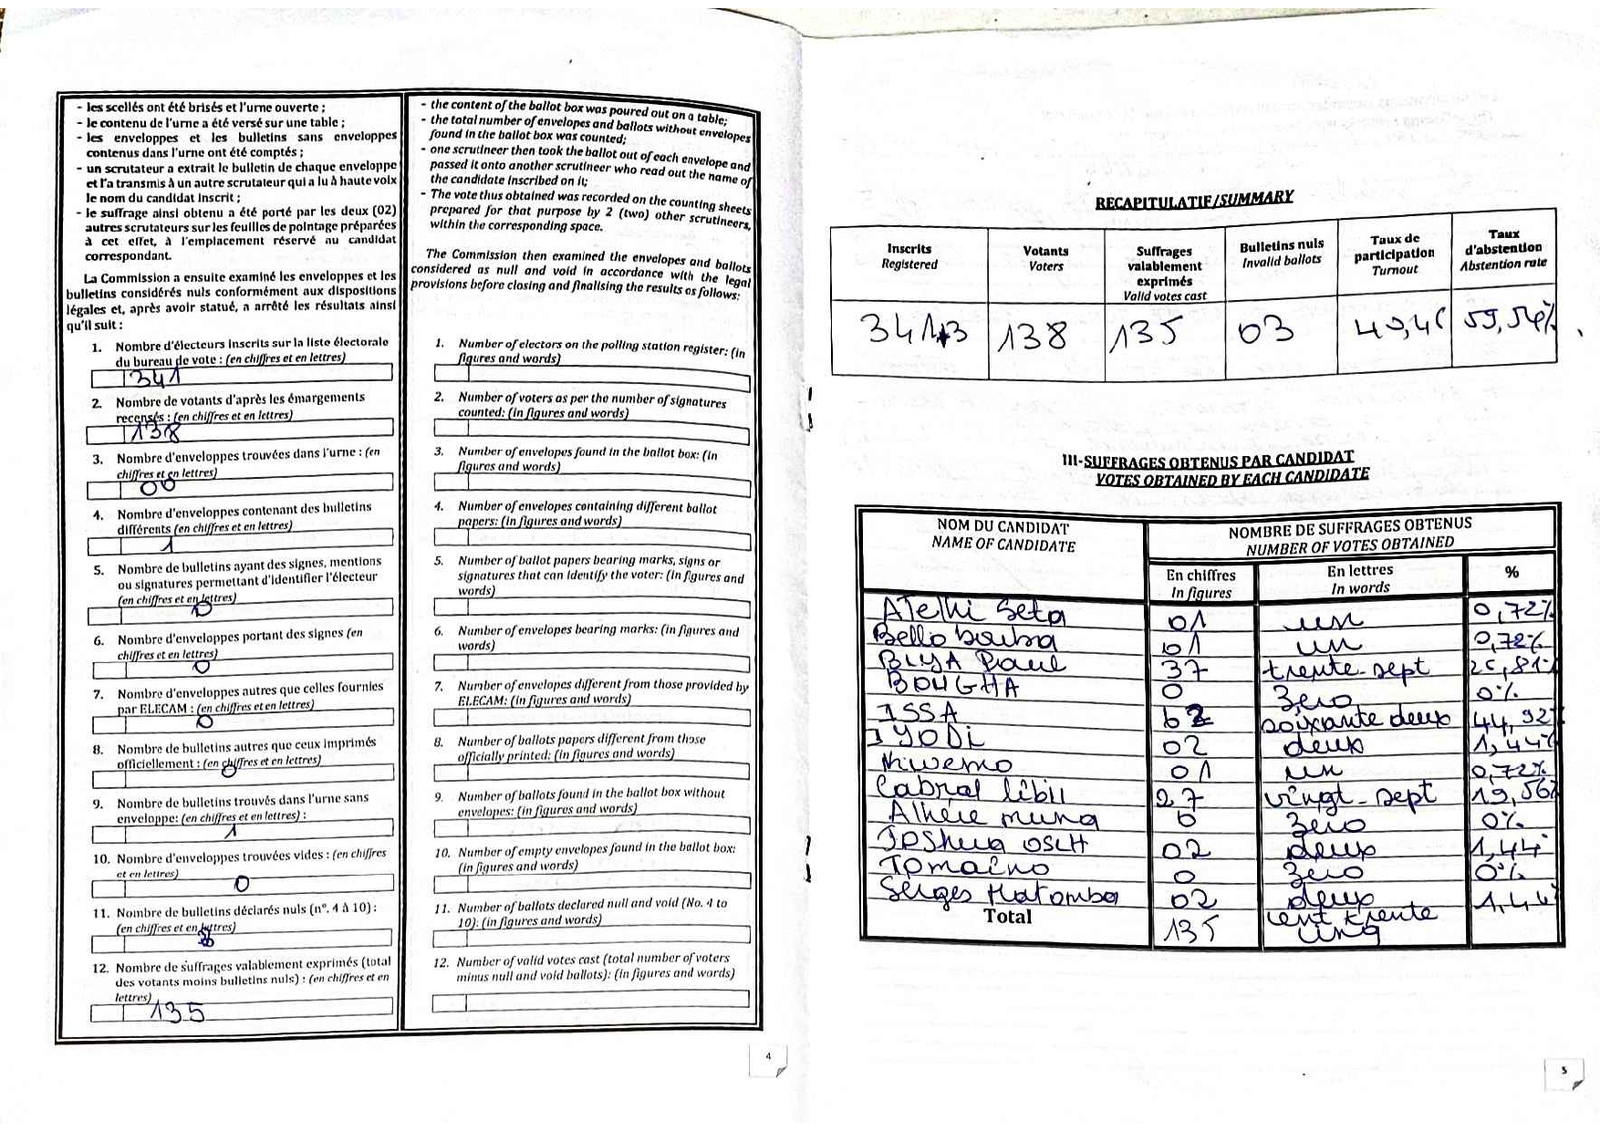 - les scellés ont été brisés et l'urne ouverte ;
- le contenu de l'urne a été versé sur une table ;
- les enveloppes et les bulletins sans enveloppes
contenus dans l'urne ont été comptés ;
- un scrutateur a extrait le bulletin de chaque enveloppe
et l'a transmis à un autre scrutateur qui a lu à haute voix
le nom du candidat inscrit ;
- le suffrage ainsi obtenu a été porté par les deux (02)
autres scrutateurs sur les feuilles de pointage préparées
à cet effet, à l'emplacement réservé au candidat
correspondant.
La Commission a ensuite examiné les enveloppes et les
bulletins considérés nuls conformément aux dispositions
légales et, après avoir statué, a arrêté les résultats ainsi
qu'il suit :
1. Nombre d'électeurs inscrits sur la liste électorale
du bureau de vote : (en chiffres et en lettres)
341
2. Nombre de votants d'après les émargements
recensés : (en chiffres et en lettres)
138
3. Nombre d'enveloppes trouvées dans l'urne : (en
chiffres et en lettres)
00
4. Nombre d'enveloppes contenant des bulletins
différents (en chiffres et en lettres)
1
5. Nombre de bulletins ayant des signes, mentions
ou signatures permettant d'identifier l'électeur
(en chiffres et en lettres)
0
6. Nombre d'enveloppes portant des signes (en
chiffres et en lettres)
0
7. Nombre d'enveloppes autres que celles fournies
par ELECAM : (en chiffres et en lettres)
0
8. Nombre de bulletins autres que ceux imprimés
officiellement : (en chiffres et en lettres)
0
9. Nombre de bulletins trouvés dans l'urne sans
enveloppe: (en chiffres et en lettres) :
1
10. Nombre d'enveloppes trouvées vides : (en chiffres
et en lettres)
0
11. Nombre de bulletins déclarés nuls (n°. 4 à 10) :
(en chiffres et en lettres)
12. Nombre de suffrages valablement exprimés (total
des votants moins bulletins nuls) : (en chiffres et en
lettres)
135
- the content of the ballot box was poured out on a table;
- the total number of envelopes and ballots without envelopes
found in the ballot box was counted;
- one scrutineer then took the ballot out of each envelope and
passed it onto another scrutineer who read out the name of
the candidate inscribed on it;
- The vote thus obtained was recorded on the counting sheets
prepared for that purpose by 2 (two) other scrutineers,
within the corresponding space.
The Commission then examined the envelopes and ballots
considered as null and void in accordance with the legal
provisions before closing and finalising the results as follows:
1. Number of electors on the polling station register: (in
figures and words)
2. Number of voters as per the number of signatures
counted: (in figures and words)
3. Number of envelopes found in the ballot box: (in
figures and words)
4. Number of envelopes containing different ballot
papers: (in figures and words)
5. Number of ballot papers bearing marks, signs or
signatures that can identify the voter: (in figures and
words)
6. Number of envelopes bearing marks: (in figures and
words)
7. Number of envelopes different from those provided by
ELECAM: (in figures and words)
8. Number of ballots papers different from those
officially printed: (in figures and words)
9. Number of ballots found in the ballot box without
envelopes: (in figures and words)
10. Number of empty envelopes found in the ballot box:
(in figures and words)
11. Number of ballots declared null and void (No. 4 to
10): (in figures and words)
12. Number of valid votes cast (total number of voters
minus null and void ballots): (in figures and words)
4
RECAPITULATIF/SUMMARY
Inscrits Registered Votants Voters Suffrages valablement exprimés Valid votes cast Bulletins nuls Invalid ballots Taux de participation Turnout Taux d'abstention Abstention rate
138 135 03 59,54%
III-SUFFRAGES OBTENUS PAR CANDIDAT
VOTES OBTAINED BY EACH CANDIDATE
NOM DU CANDIDAT NOMBRE DE SUFFRAGES OBTENUS
NAME OF CANDIDATE NUMBER OF VOTES OBTAINED
En chiffres En lettres %
In figures In words
Ateki Seta 01 un 0,72%
Bello bouba 01 un 0,72%
BIYA Paul 37 trente-sept 26,81%
BOUGHA 0 zero 0%
ISSA 62 soixante deux 44,92%
IYODI 02 deux 1,44%
Kwemo 01 un 0,72%
Cabral libii 27 vingt-sept 19,56%
muna 0 zero 0%
Joshua OSIH 02 deux 1,44
Tomaino 0 zero 0%
Serges Matomba 02 deux 1,44
Total 135 cent trente
cinq
5